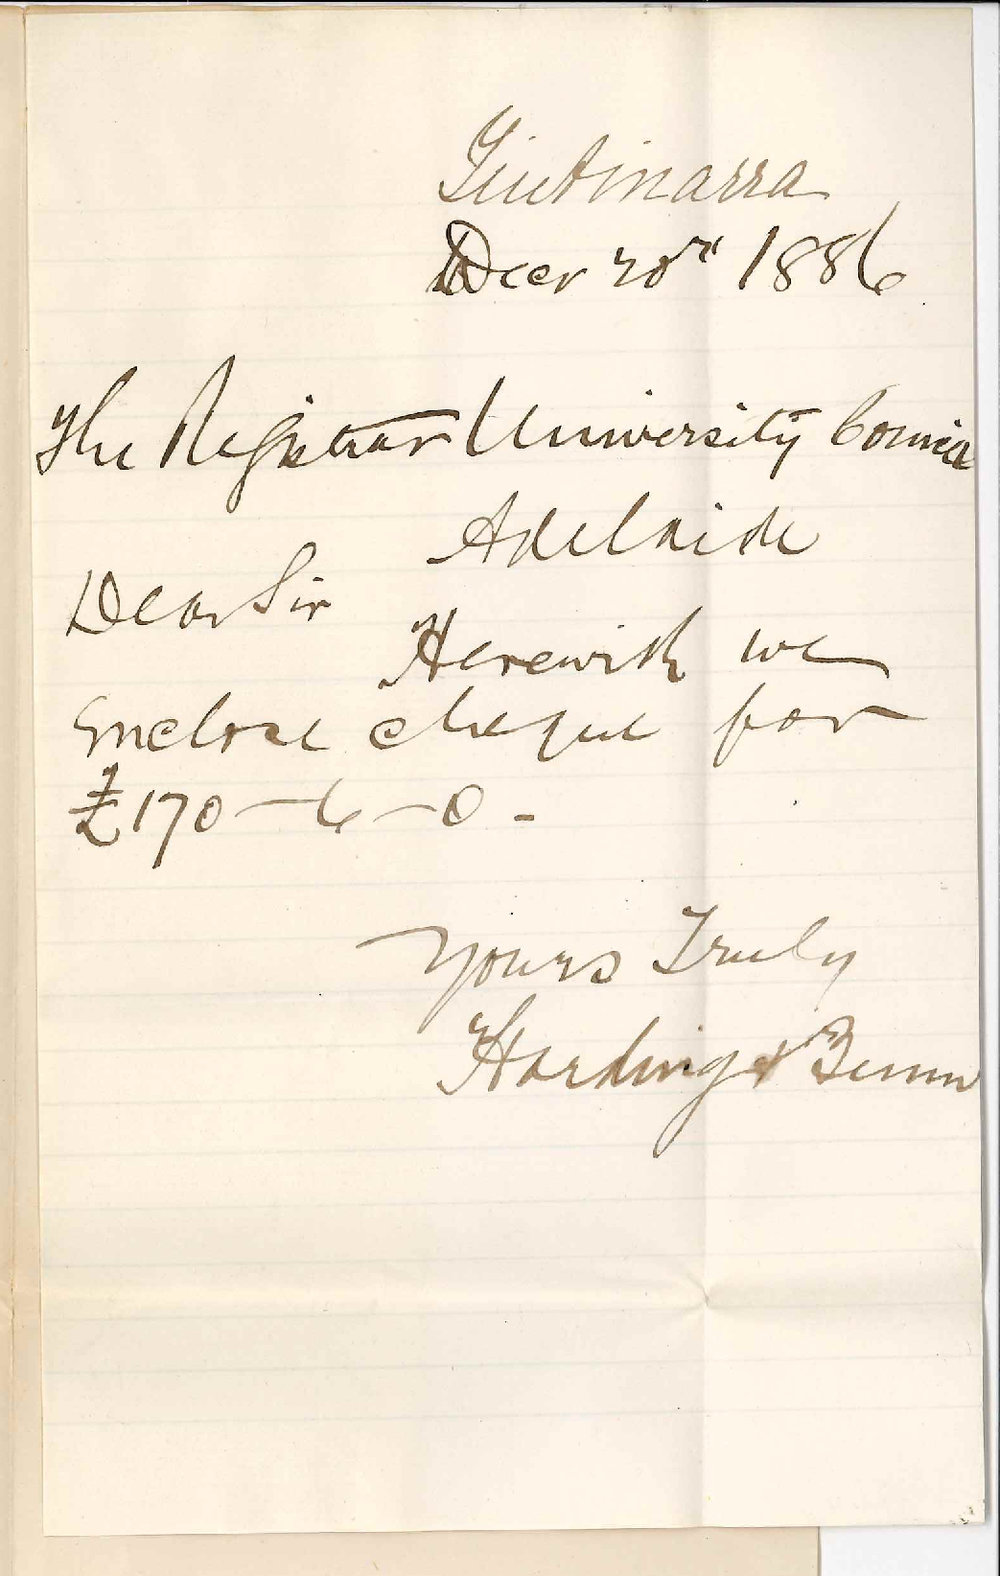 Tintinarra
Decr 20th 1886
The Registrar University Council
Adelaide
Dear Sir
Herewith we
Enclose cheque for
£170-6-0-
Yours Truly
Harding &